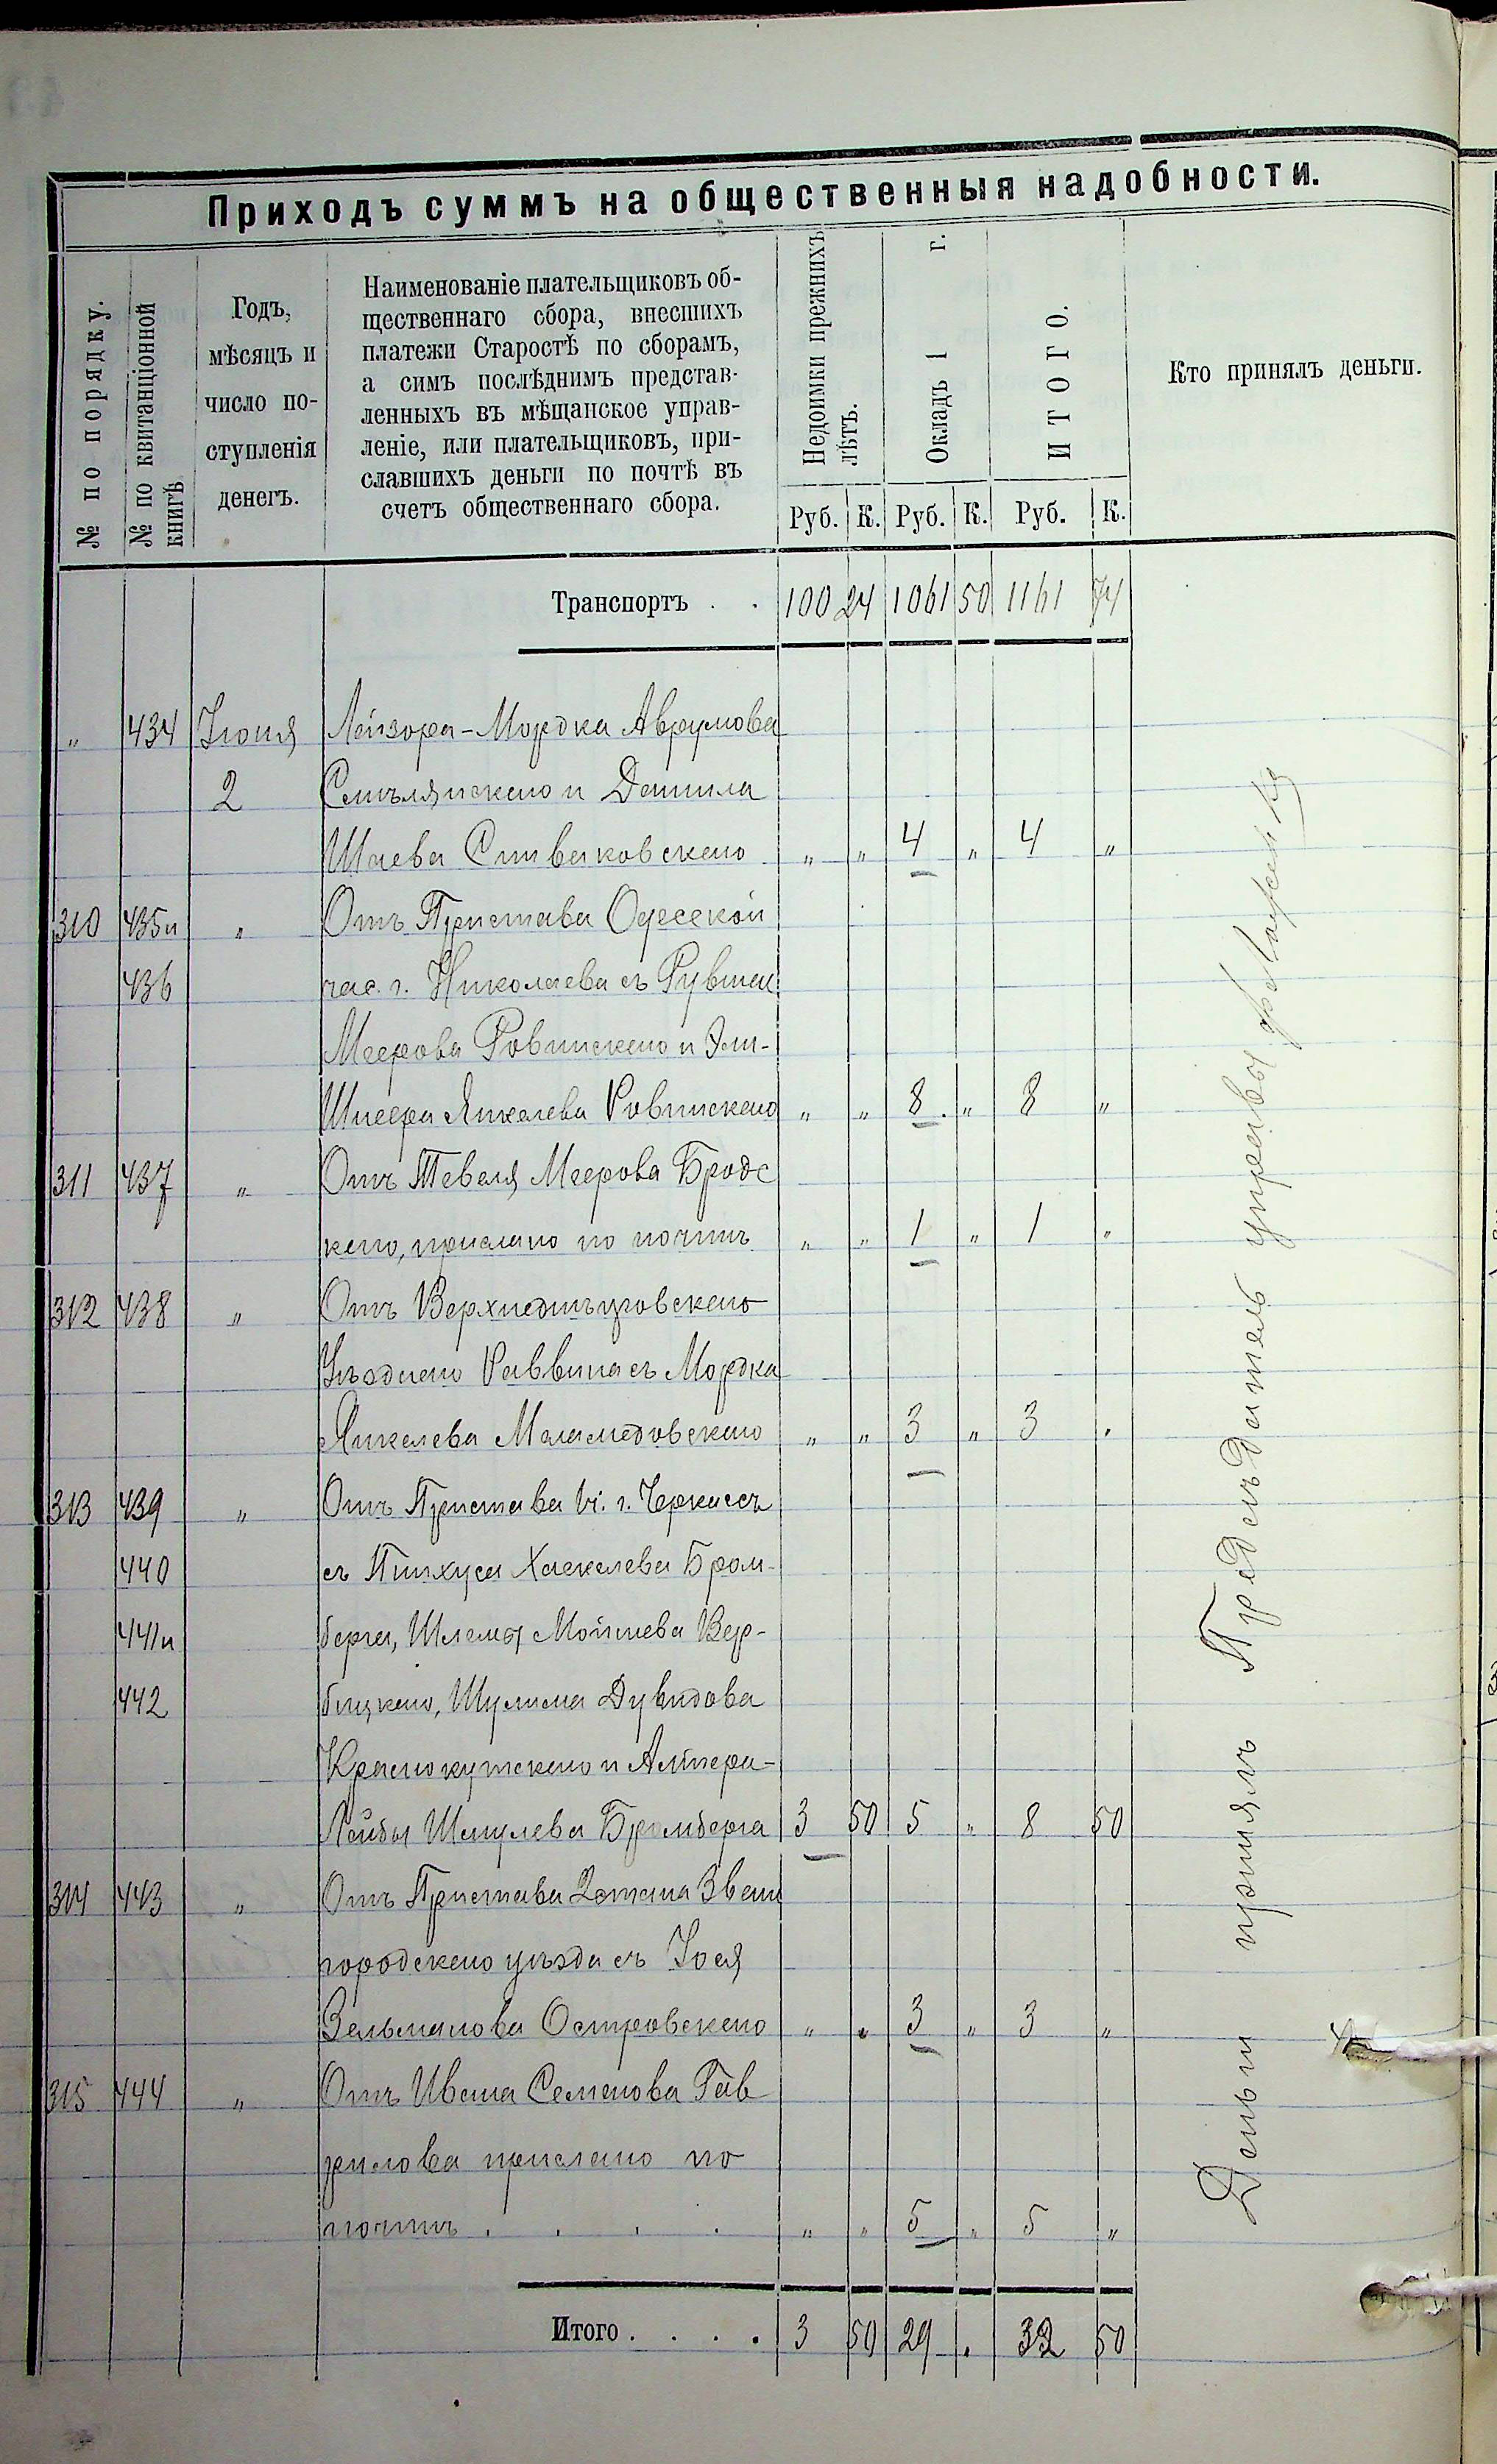 Приходъ суммъ на общественныя надобности.
№ по порядку.
№ по квитанціонной книгѣ
Годъ, мѣсяцъ и число поступленія денегъ.
Наименованіе плательщиковъ об-
щественнаго сбора, внесшихъ
платежи Старостѣ по сборамъ,
а симъ послѣднимъ представ-
ленныхъ въ мѣщанское управ-
леніе, или плательщиковъ, при-
славшихъ деньги по почтѣ въ
счетъ общественнаго сбора.
Недоимки прежнихъ лѣтъ.
Окладъ 1 г.
ИТОГО.
Кто принялъ деньги.
Руб. К. Руб. К. Руб. К.
Транспортъ . . 100 24 1061 50 1161 74
" 434 Іюня Лейзора-Мордка Аврумова
2 Смѣлянскаго и Данила
Шаева Сиваковскаго " " 4 " 4 "
310 435 и " Отъ Пристава Одесской
436 час. г. Николаева съ Рувина
Меерова Ровинскаго и Эли-
Шнеера Янкелева Ровинскаго " " 8 . " 8 "
311 437 " Отъ Тевеля Меерова Бродс
каго, прислано по почтѣ " " 1 " 1 "
312 438 " Отъ Верхнеднѣпровскаго
Уѣзднаго Раввина съ Мордка
Янкелева Маламедовскаго " " 3 " 3 "
313 439 " Отъ Пристава г. Черкассъ
440 съ Пинхуса Хаскелева Бром-
441 и берга, Шлемы Мойшева Вер-
442 бицкаго, Шулима Дувидова
Краснокутскаго и Алтера-
Лейбы Шмулева Бромберга 3 50 5 " 8 50
314 443 " Отъ Пристава 2 стана Звени
городскаго уѣзда съ Іося
Зельманова Островскаго " " 3 " 3 "
315 444 " Отъ Ивана Семенова Гав
рилова прислано по
почтѣ . . . . " " 5 " 5 "
Итого . . . . 3 50 29 . 32 50
Деньги принялъ Предсѣдатель управы